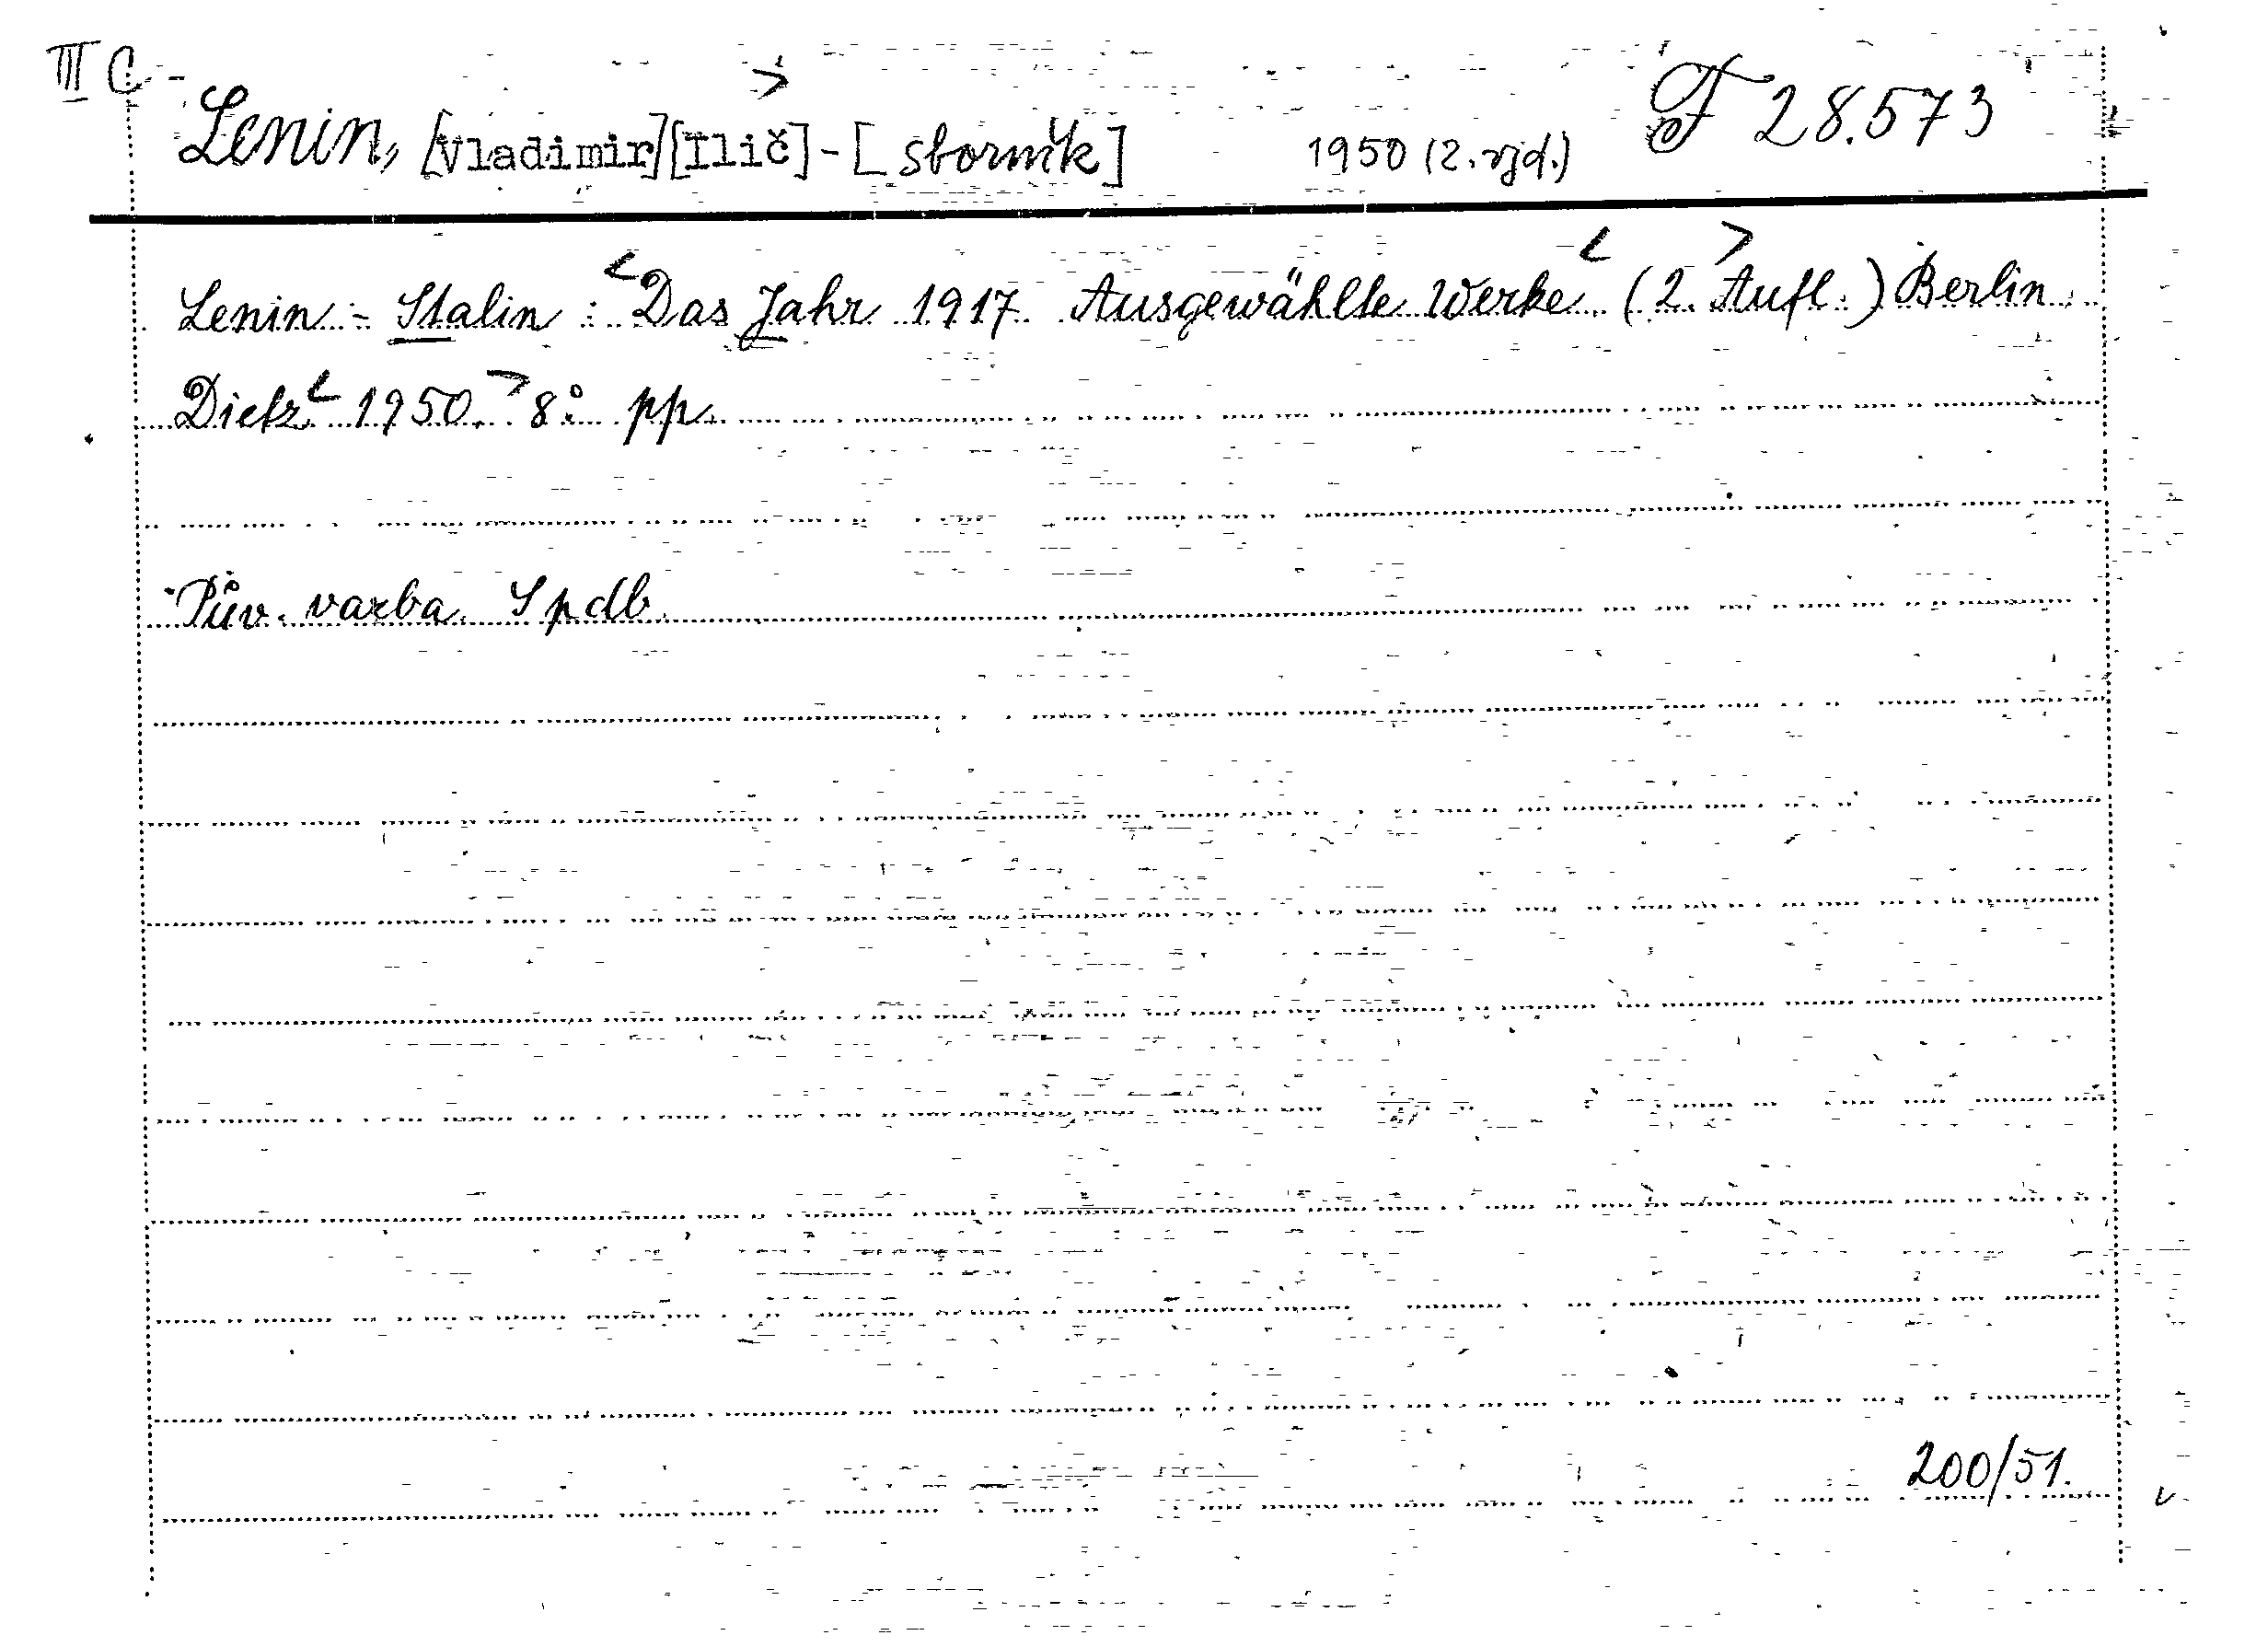 III C
Lenin, [Vladimir][Ilič] - [sborník] 1950 (2. vyd.) F 28.573
Lenin - Stalin : Das Jahr 1917 Ausgewählte Werke (2. Aufl.) Berlin
Dietz 1950. 8° pp.
Pův. vazba. Spdb.
200/51.